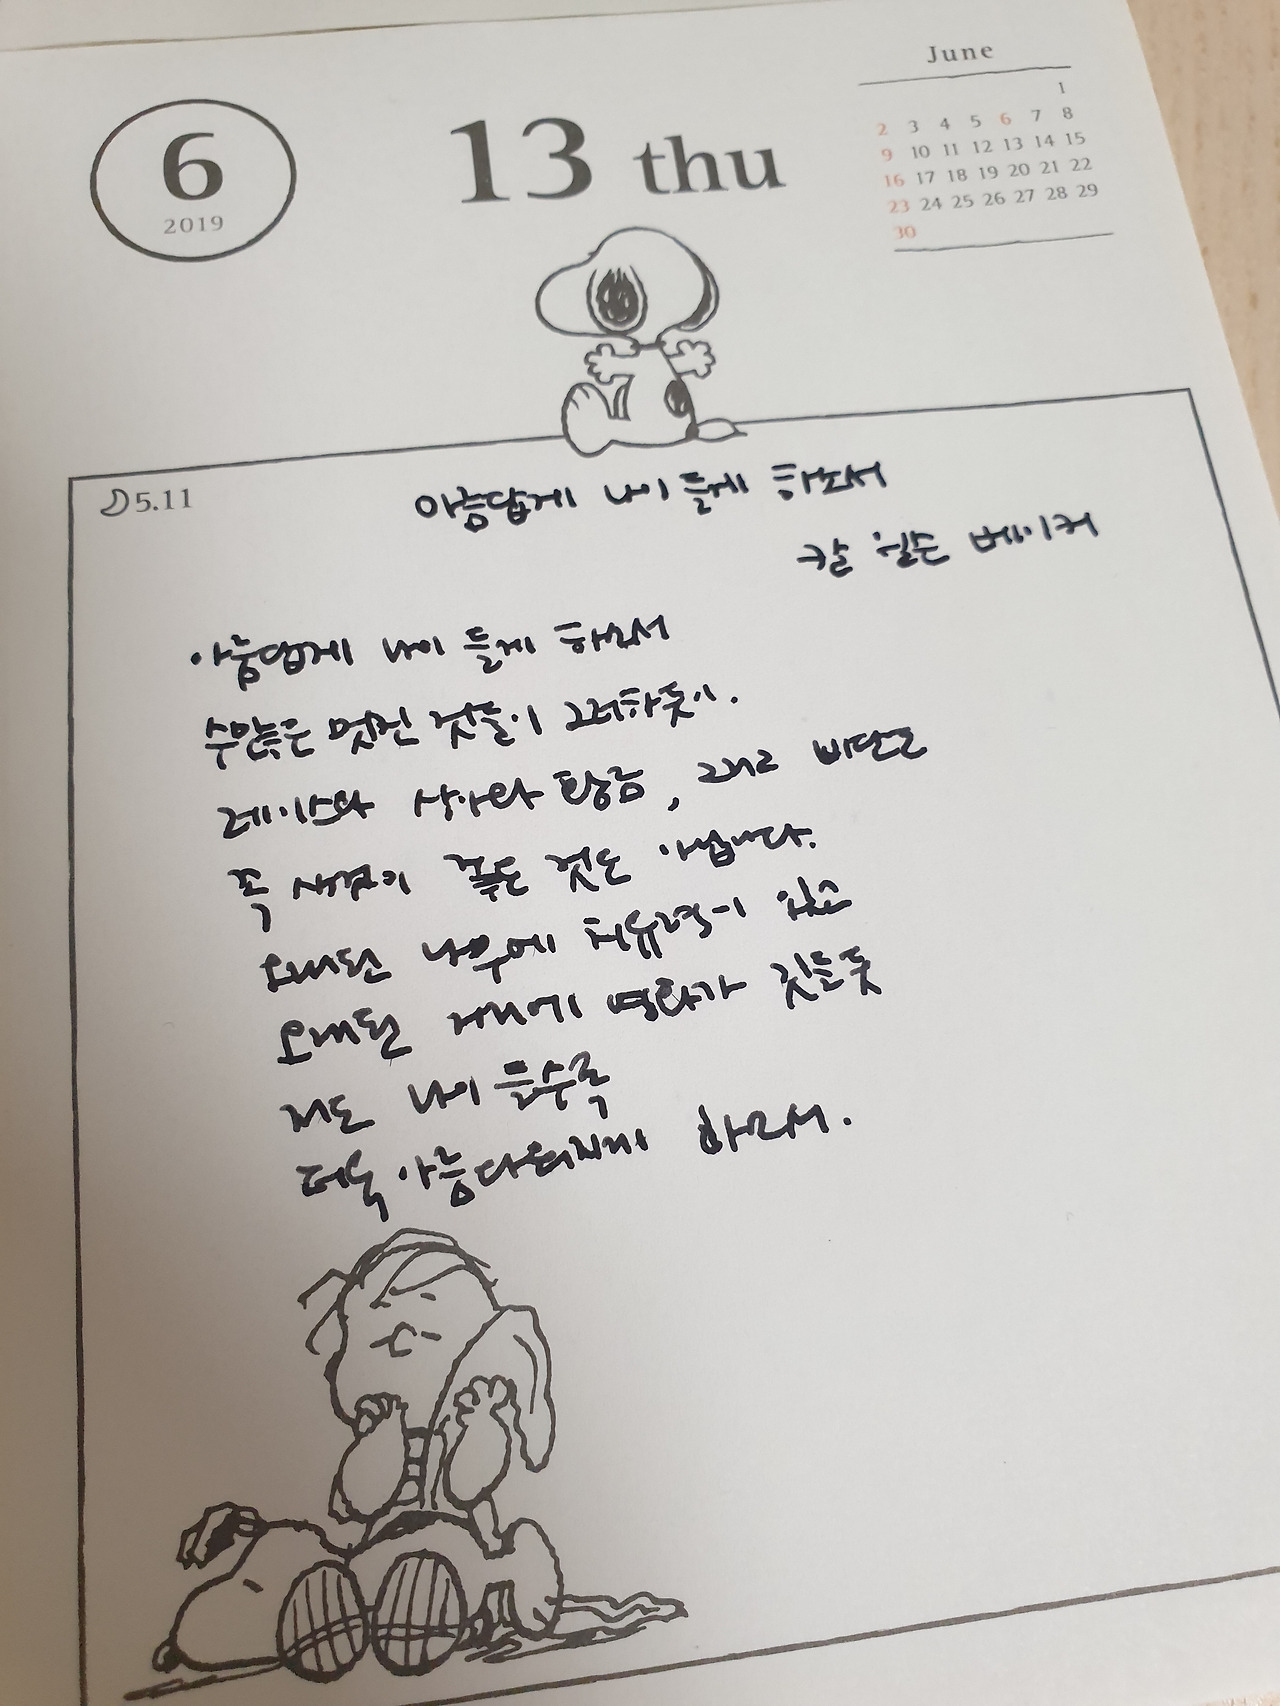 June
6
2019
13 thu
1
2 3 4 5 6 7 8
9 10 11 12 13 14 15
16 17 18 19 20 21 22
23 24 25 26 27 28 29
30
5.11
아름답게 나이 들게 하소서
칼 윌슨 베이커
아름답게 나이 들게 하소서
수많은 멋진 것들이 그러하듯이.
레이스와 상아와 황금, 그리고 비단도
꼭 새것이 좋은 것도 아닙니다.
오래된 나무에 치유력이 있고
오래된 거리에 영화가 깃들듯
저도 나이 들수록
더욱 아름다워지게 하소서.